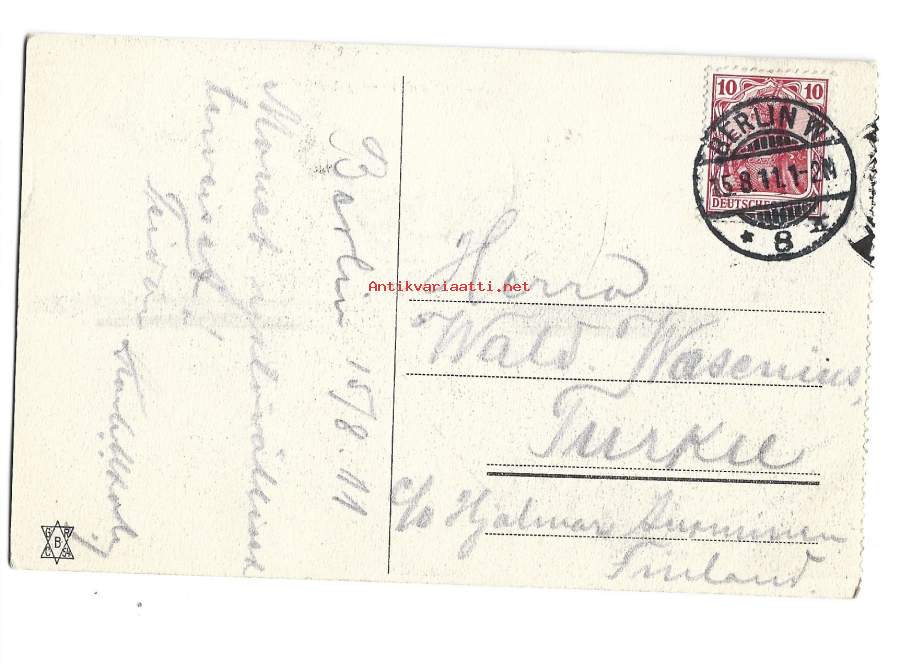 Berlin 15/8. 11
Monet
terveiset!
10 10
BERLIN W.
15.8.11.1-2N
DEUTSCHES
* 8
Antikvariaatti.net
Herra
Wald. Wasenius
Turku
c/o Hjalmar Suominen
Finland
G R
B
C